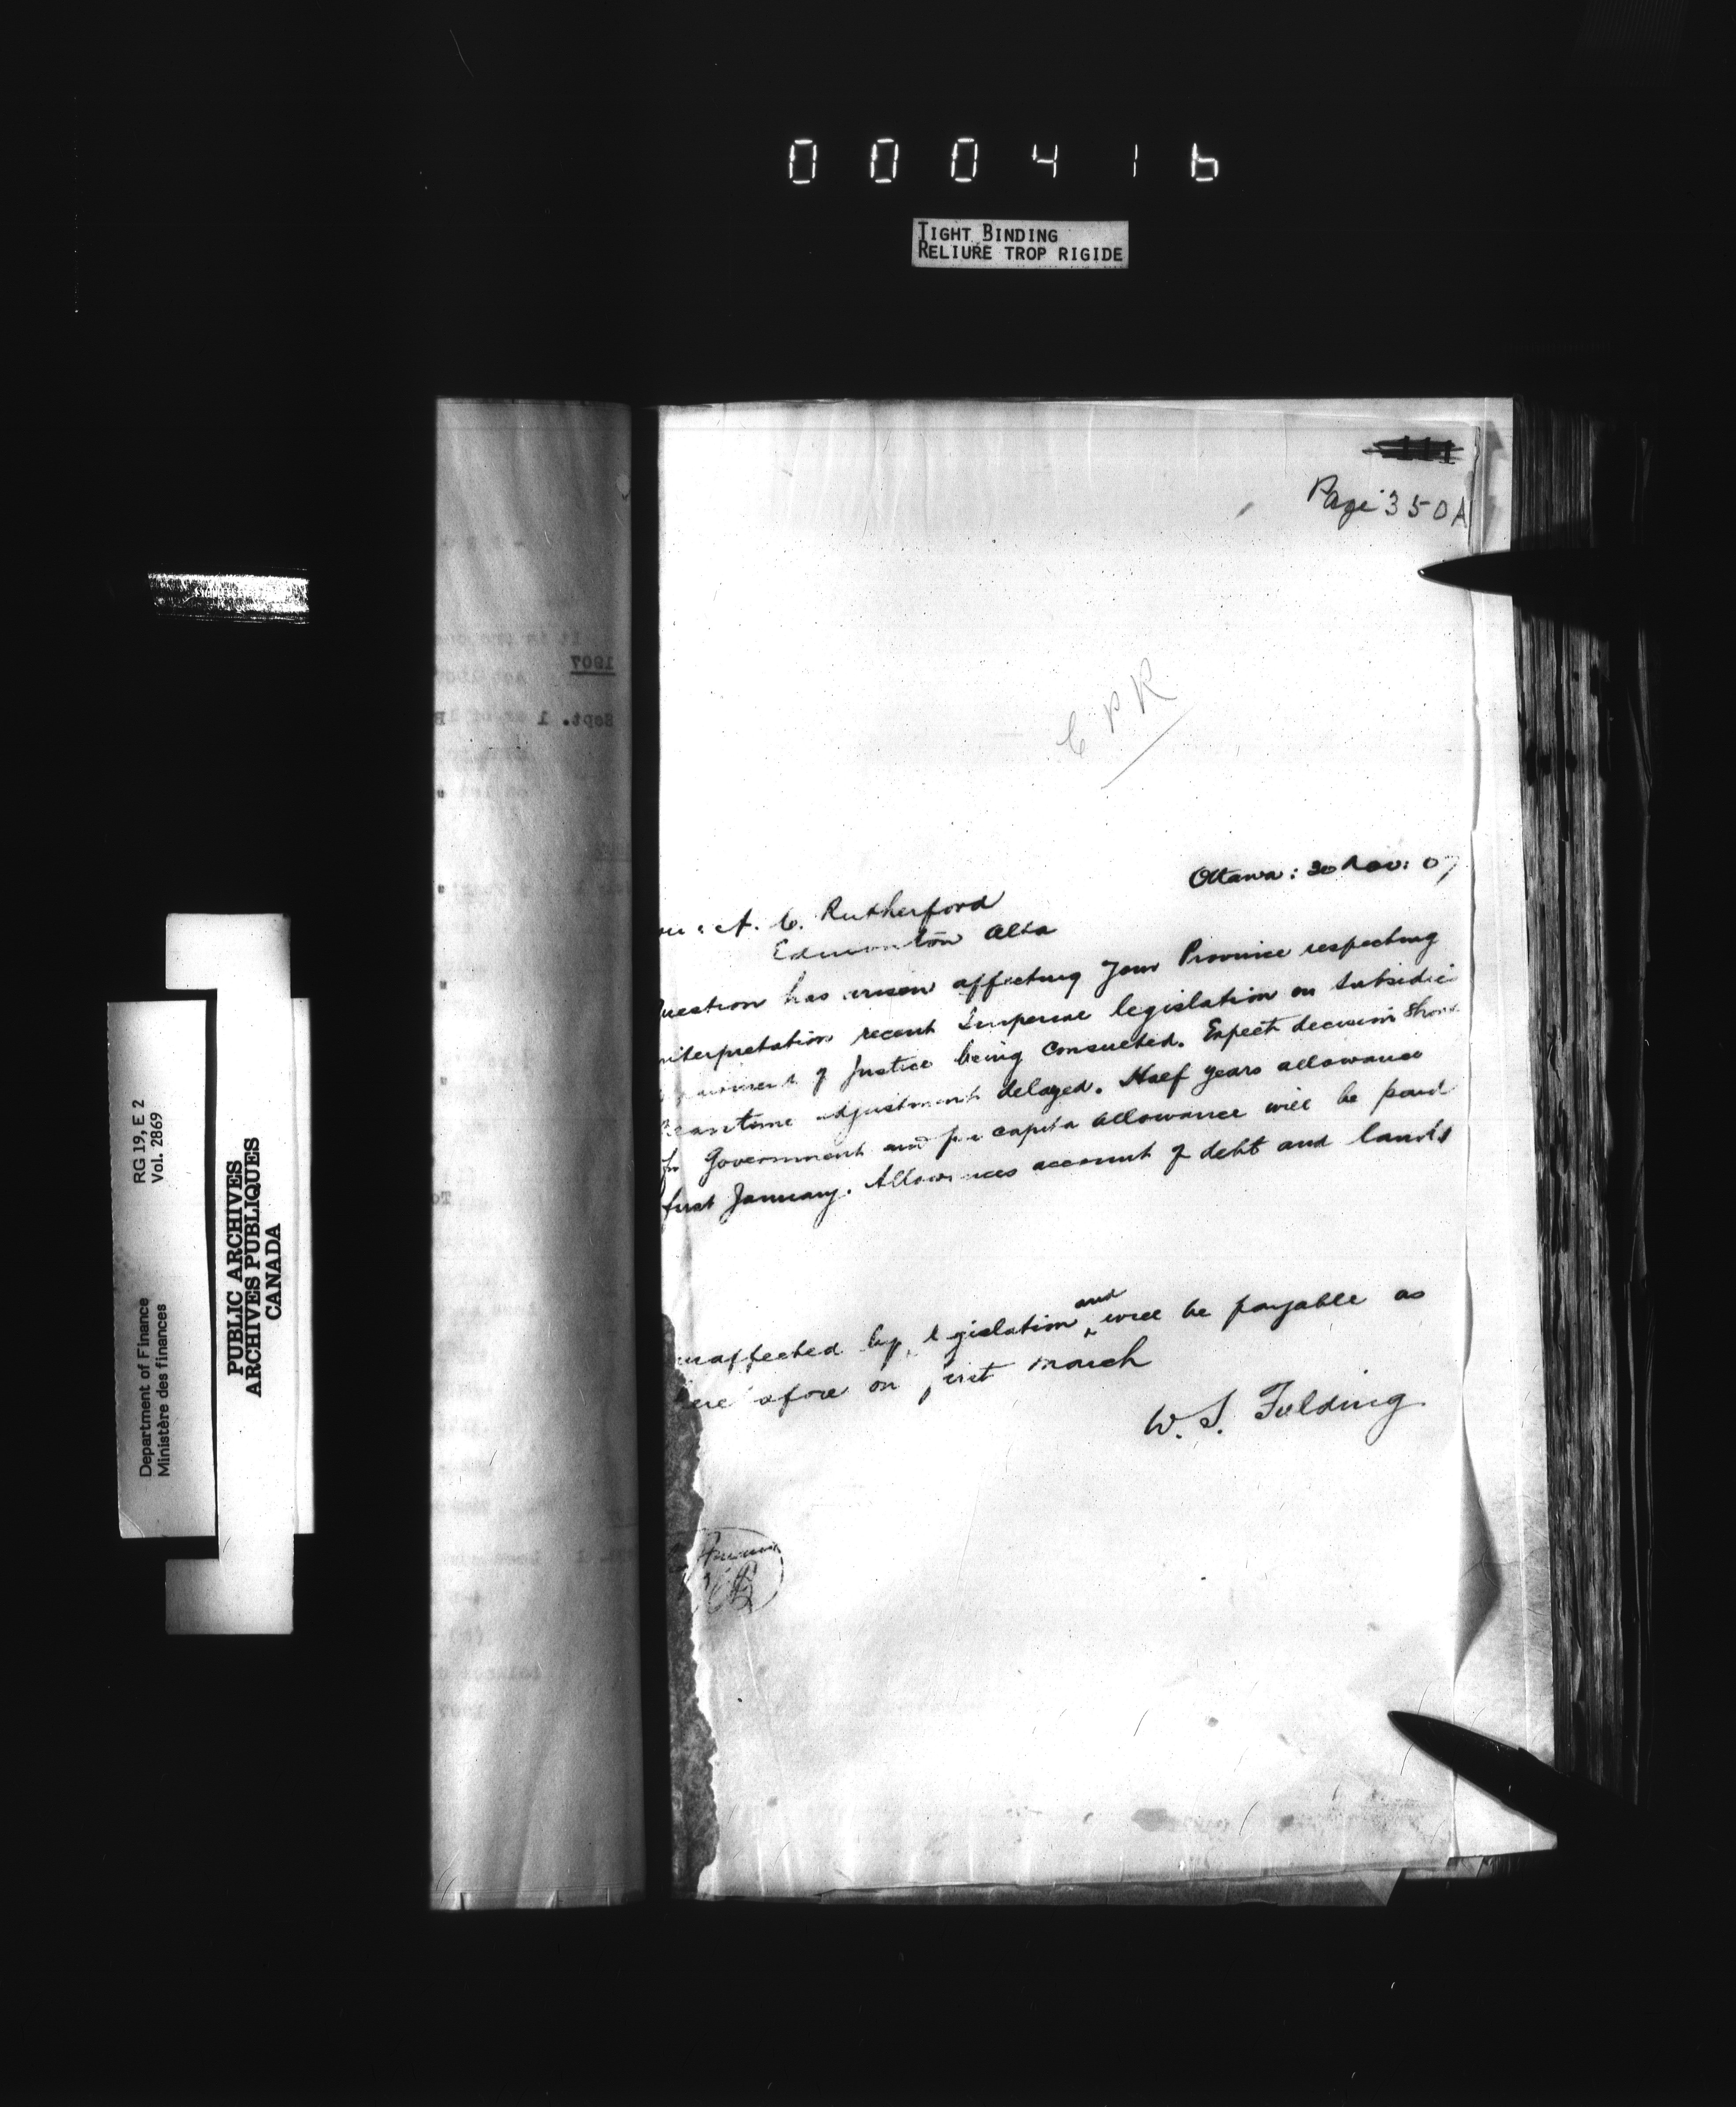 000416
TIGHT BINDING
RELIURE TROP RIGIDE
Page 350A
CPR
Ottawa: 30 Nov: 07
A. C. Rutherford
Edmonton Alta
uestion has arisen affecting your Province respecting
nterpretation recent Imperial legislation on subsidie
of Justice being consulted. Expect decision
eantime adjustment delayed. Half years allowance
for Government and per capita allowance will be paid
first January. Allowances account of debt and lands
unaffected by legislation and will be payable as
on first March
W. S. Fielding
RG 19, E 2
Vol. 2869
Department of Finance
Ministère des finances
PUBLIC ARCHIVES
ARCHIVES PUBLIQUES
CANADA
1907
Sept. 1